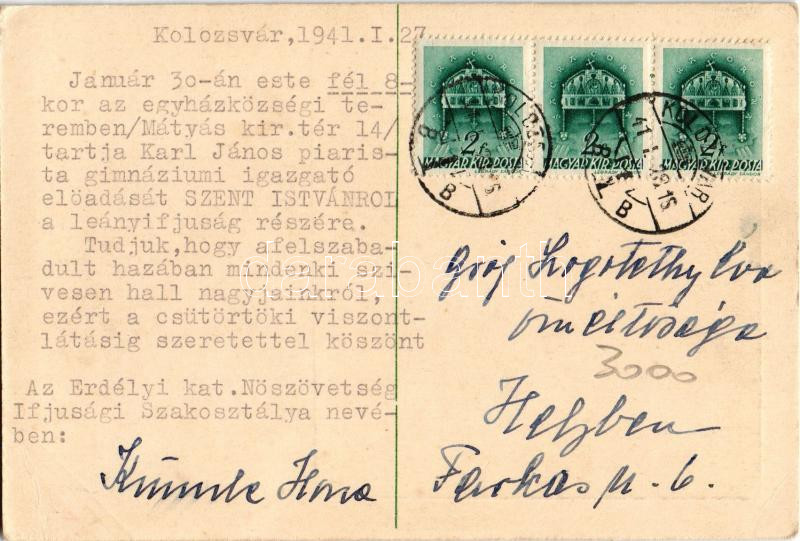 Kolozsvár,1941.I.27
Január 30-án este fél 8-
kor az egyházközségi te-
remben/Mátyás kir.tér 14/
tartja Karl János piaris-
ta gimnáziumi igazgató
elöadását SZENT ISTVÁNROL
a leányifjuság részére.
Tudjuk,hogy afelszaba-
dult hazában mindenki szi-
vesen hall nagyjainkról,
ezért a csütörtöki viszont-
látásig szeretettel köszönt
Az Erdélyi kat.Nöszövetség
Ifjusági Szakosztálya nevé-
ben:
Ilona
2f 2f 2f
MAGYAR KIR. POSTA MAGYAR KIR. POSTA MAGYAR KIR. POSTA
KOLOZSVÁR
B
Gróf Logothetty Éva
őméltósága
3000
Helyben
Farkas u. 6.
darabanth